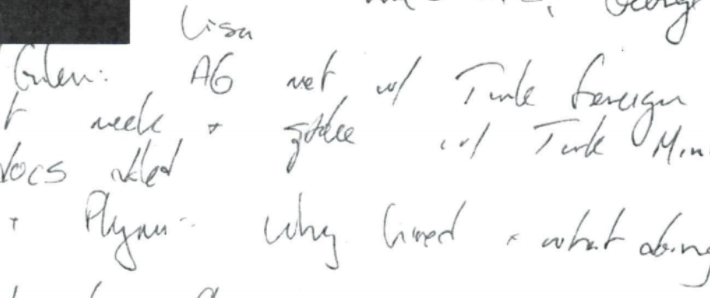 George
Lisa
Gulen: AG met w/ Turk foreign
t week + spoke w/ Turk Min
docs
+ Flynn - why hired + what doing